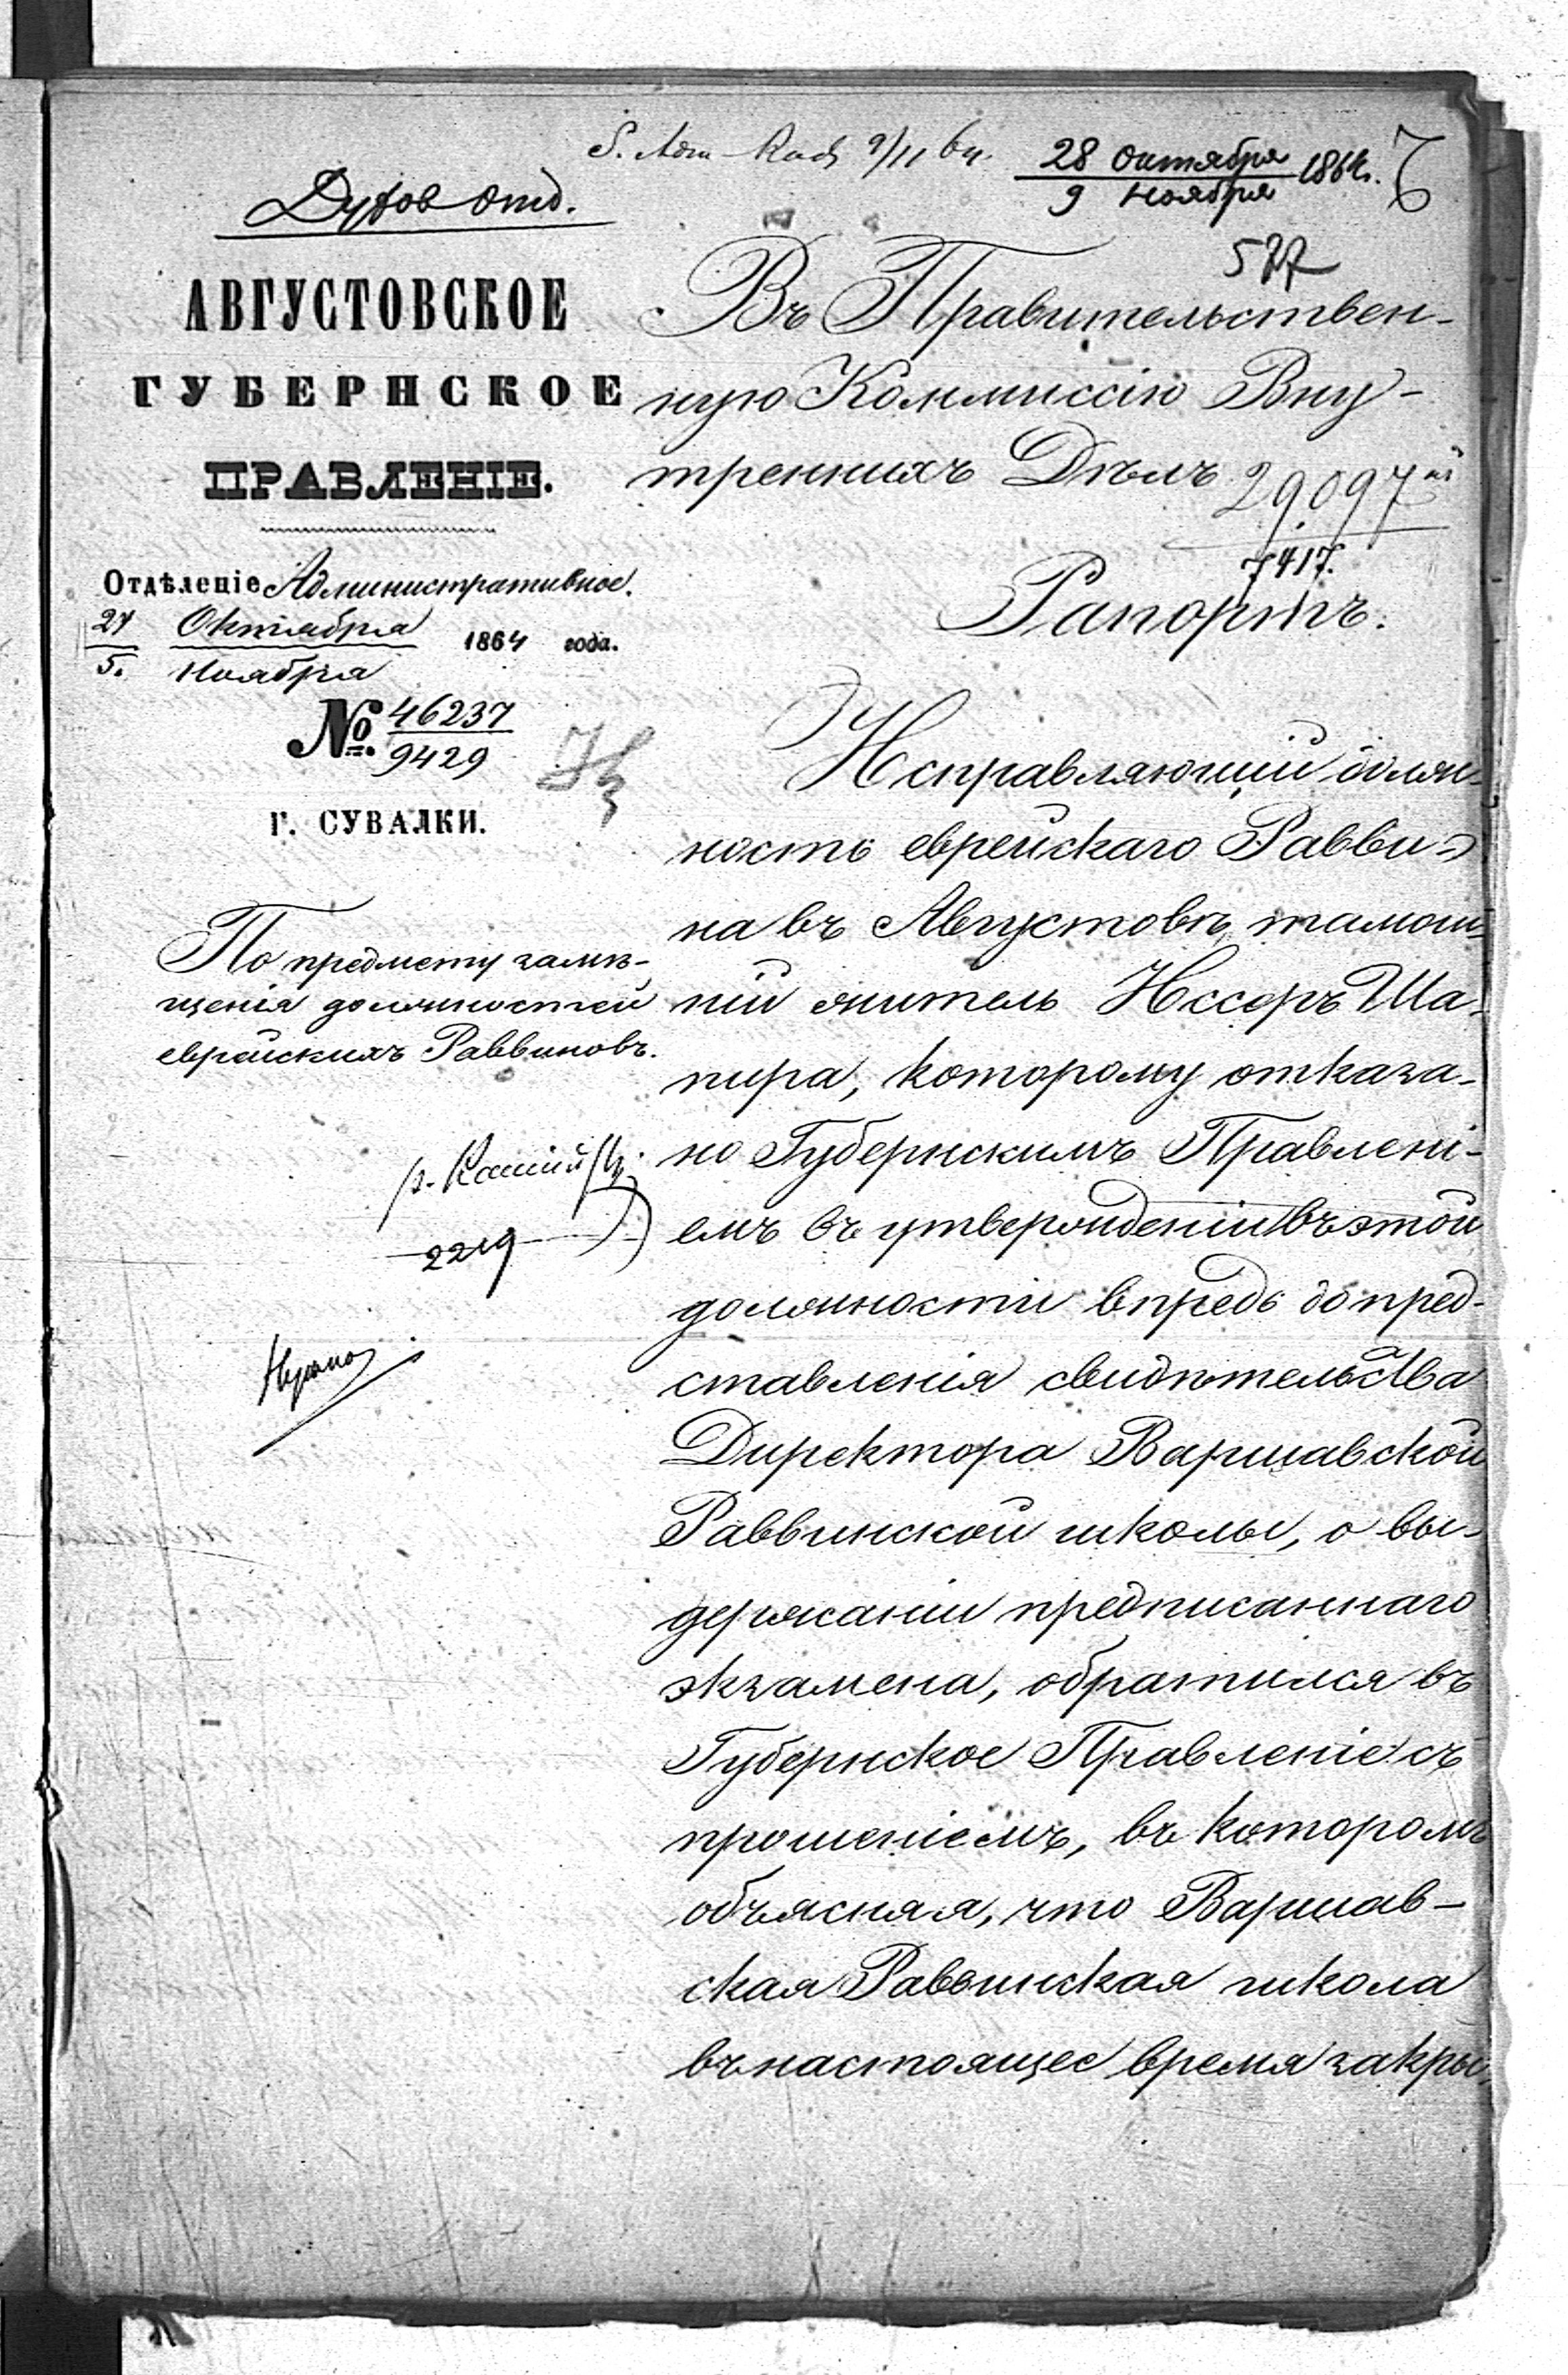 28 Октября 1864 г.
9 Ноября
Духов. Отд.
577
АВГУСТОВСКОЕ
ГУБЕРНСКОЕ
ПРАВЛЕНІЕ.
Отдѣленіе Административное.
Октября 1864 года.
5. Ноября
№ 46237
9429
Г. СУВАЛКИ.
По предмету замѣ-
щенія должностей
еврейскихъ Раввиновъ.
2219
Въ Правительствен-
ную Коммиссію Вну-
треннихъ Дѣлъ
29097
7417.
Рапортъ.
Исправляющій долж-
ность еврейскаго Равви-
на въ Августовѣ, тамош-
ній житель Иссеръ Ша-
пира, которому отказа-
но Губернскимъ Правлені-
емъ въ утвержденіи въ этой
должности впредь до пред-
ставленія свидѣтельства
Директора Варшавской
Раввинской школы, о вы-
держаніи предписаннаго
экзамена, обратился въ
Губернское Правленіе съ
прошеніемъ, въ которомъ
объясняя, что Варшав-
ская Раввинская школа
въ настоящее время закры-